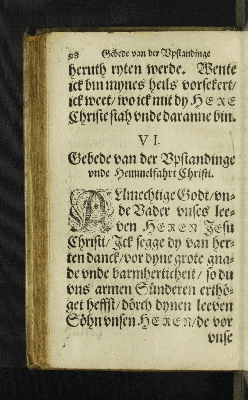 98 Gebede van der Vpstandinge
heruth ryten werde. Wente
ick bin mynes heils vorsekert/
ick weet/ wo ick mit dy HERE
Christe stah vnde daranne bin.
VI.
Gebede van der Vpstandinge
vnde Hemmelfahrt Christi.
ALmechtige Godt/ vn-
de Vader vnses lee-
ven HEREN Jesu
Christi/ Ick segge dy van her-
ten danck/ vor dyne grote gna-
de vnde barmherticheit/ so du
vns armen Sünderen erthö-
get heffst/ dörch dynen leeven
Söhn vnsen HEREN/ de vor
vnse